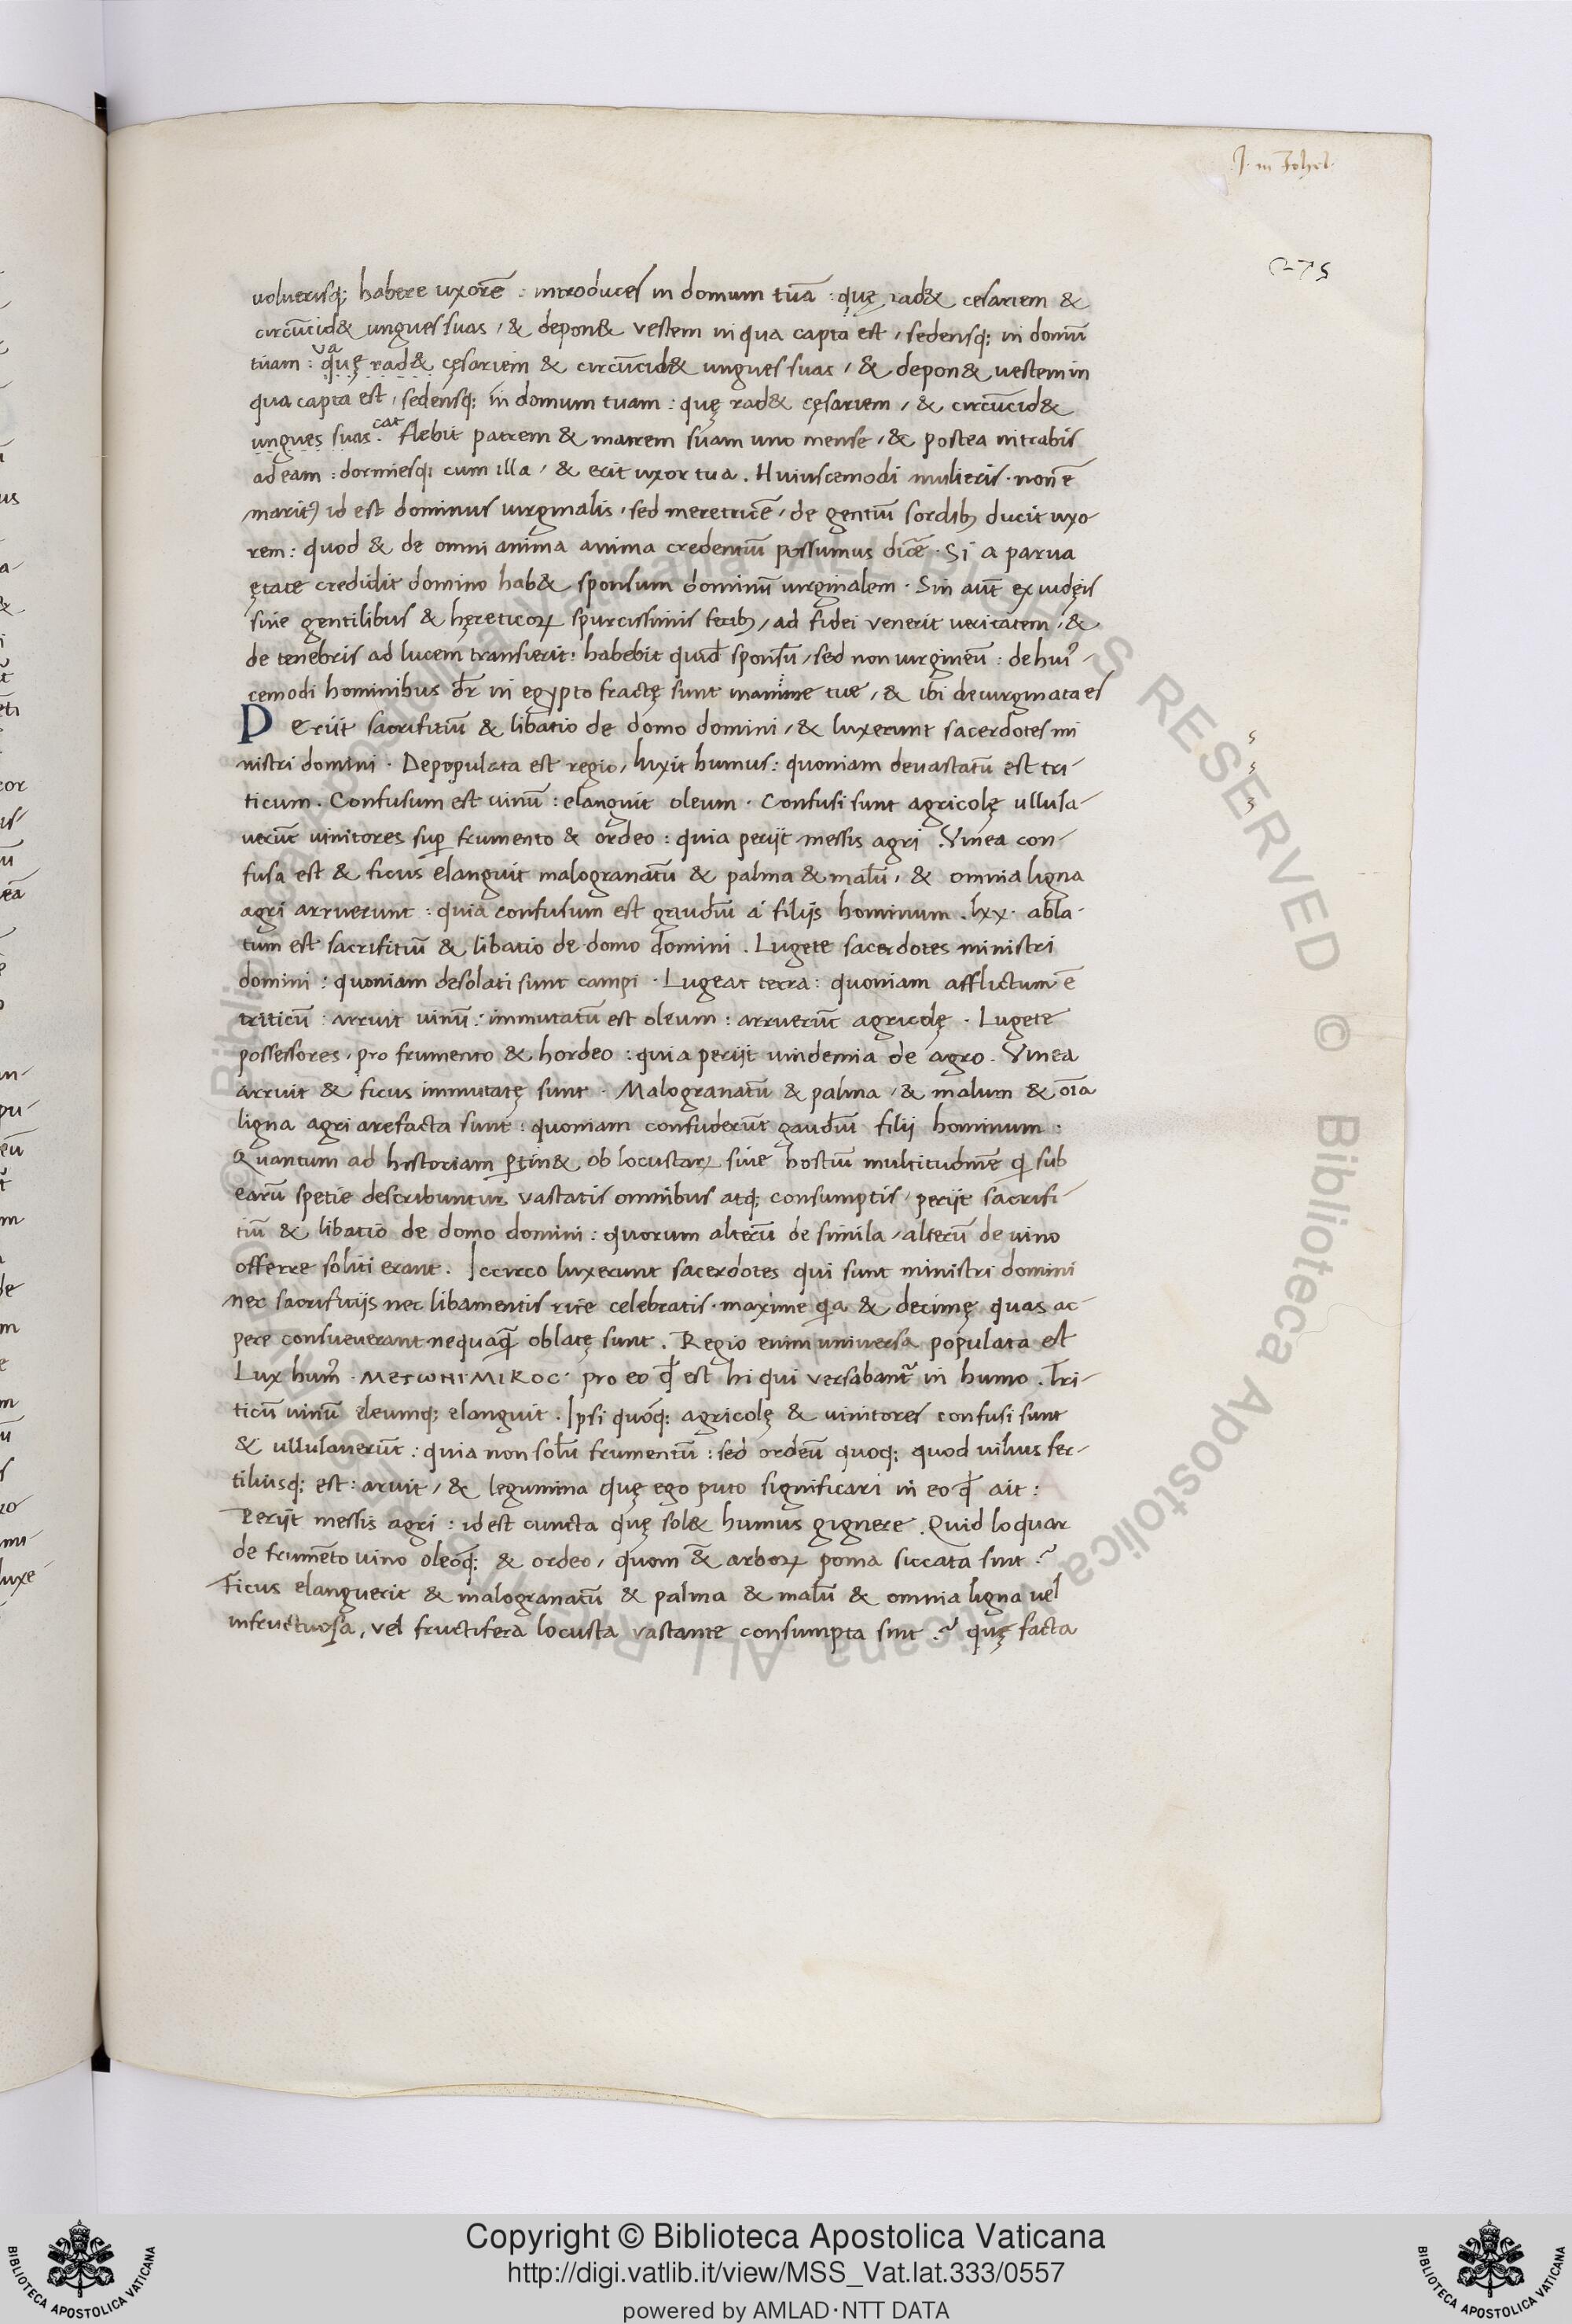 J. in Johel.
275
voluerisq; habere uxorē : introduces in domum tuā : quę rad& cesariem &
circūcid& ungues suas / & depon& vestem in qua capta est / sedensq; in domū
tuam : quę rad& cęsariem & circūcid& ungues suas / & depon& uestem in
qua capta est / sedensq; in domum tuam : quę rad& cęsariem / & circūcid&
ungues suas . flebit patrem & matrem suam uno mense / & postea intrabis
ad eam : dormiesq; cum illa / & erit uxor tua . Huiuscemodi mulieris · non ē
marit9 id est dominus uirginalis / sed meretricē / de gentiū sordib; ducit uxo
rem : quod & de omni anima anima credentiū possumus dicē̄ · Si a parua
ętate credidit domino hab& sponsum dominū uirginalem · Sin aūt ex iudęis
siue gentilibus & hęreticoꝝ spurcissimis / ad fidei venerit ueritatem / &
de tenebris ad lucem transierit : habebit quid̄ sponsū / sed non uirgineū : de hui9 -
cemodi hominibus dr̄ in egypto fractę sunt mamme tue / & ibi deuirginata es
Periit sacrifitiū & libatio de domo domini / & luxerunt sacerdotes mi
nistri domini · Depopulata est regio / luxit humus : quoniam deuastatū est tri-
ticum . Confusum est uinū : elanguit oleum · Confusi sunt agricolę ullula-
uerūt vinitores suꝑ frumento & ordeo : quia periit messis agri . Vinea con-
fusa est & ficus elanguit malogranatū & palma & malū / & omnia ligna
agri arruerunt : quia confusum est gaudiū a filijs hominum . lxx · abla-
tum est sacrifitiū & libatio de domo domini . Lugete sacerdotes ministri
domini : quoniam desolati sunt campi · Lugeat terra : quoniam afflictum ē
triticū : arruit uinū : immutatū est oleum : arruerūt agricolę · Lugete
possessores / pro frumento & hordeo : quia perijt uindemia de agro . Vinea
arruit & ficus immutatę sunt · Malogranatū & palma / & malum & oīa
ligna agri arefacta sunt : quoniam confuderūt gaudiū filij hominum :
Quantum ad historiam ꝑtin& ob locustaꝝ siue hostiū multitudinē q̄ sub
earū spetie describuntur vastatis omnibus atq; consumptis / perijt sacrifi-
tiū & libatio de domo domini : quorum alterū de simila / alterū de vino
offerre soliti erant . Iccirco luxerunt sacerdotes qui sunt ministri domini
nec sacrifitijs nec libamentis rite celebratis · maxime q̄a & decimę quas ac-
pere consueuerant nequaq̄ oblatę sunt . Regio enim universa populata est
Lux hum9 · ΜΕΤωΝΙΜΙΚΟC · pro eo qd̄ est hi qui versabant̄ in humo . Tri-
ticū uinū oleumq; elanguit . Ipsi quóq; agricolę & uinitores confusi sunt
& ullulauerūt : quia non solū frumentū : sed ordeū quoq; quod uilius fer-
tiliusq; est : aruit / & legumina quę ego puto significari in eo qd̄ ait :
Perijt messis agri : id est cuncta quę sol& humus gignere . Quid loquar
de frumēto uino oleoq; & ordeo / quom &̄ arboꝝ poma siccata sint ?
Ficus elanguerit & malogranatū & palma & malū & omnia ligna uel
infructuosa / vel fructifera locusta vastante consumpta sint ? quę facta
Copyright © Biblioteca Apostolica Vaticana
http://digi.vatlib.it/view/MSS_Vat.lat.333/0557
powered by AMLAD·NTT DATA
BIBLIOTECA APOSTOLICA VATICANA
BIBLIOTECA APOSTOLICA VATICANA